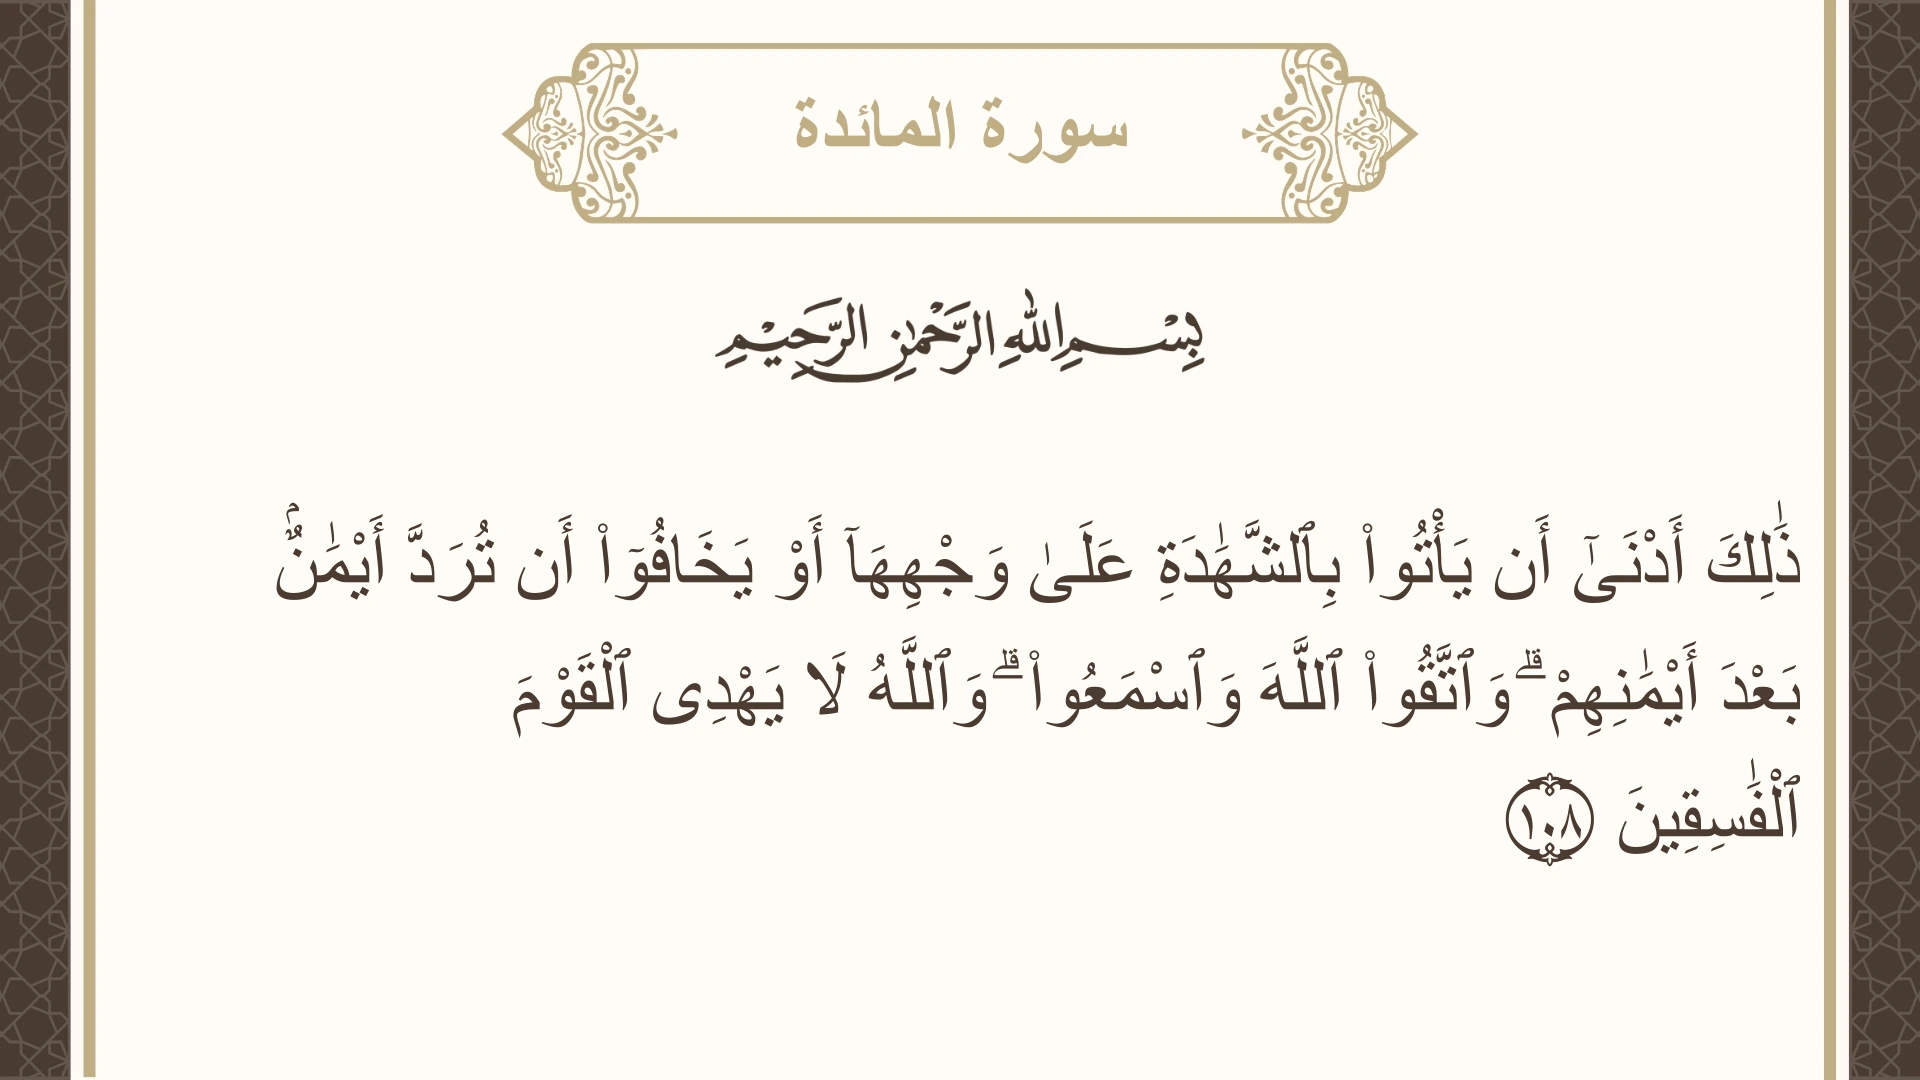 سورة المائدة
بِسْمِ اللهِ الرَّحْمٰنِ الرَّحِيْمِ
ذَٰلِكَ أَدْنَىٰٓ أَن يَأْتُوا۟ بِٱلشَّهَٰدَةِ عَلَىٰ وَجْهِهَآ أَوْ يَخَافُوٓا۟ أَن تُرَدَّ أَيْمَٰنٌۢ
بَعْدَ أَيْمَٰنِهِمْ ۗ وَٱتَّقُوا۟ ٱللَّهَ وَٱسْمَعُوا۟ ۗ وَٱللَّهُ لَا يَهْدِى ٱلْقَوْمَ
ٱلْفَٰسِقِينَ ١٠٨